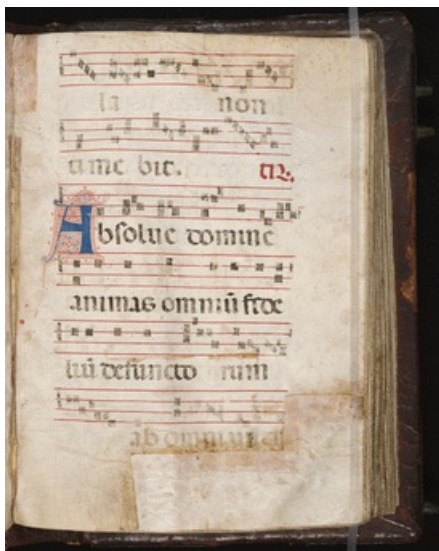 la non
time bit. TR.
Absolue domine
animas omniũ fide
liũ defuncto rum
ab omni uĩcl